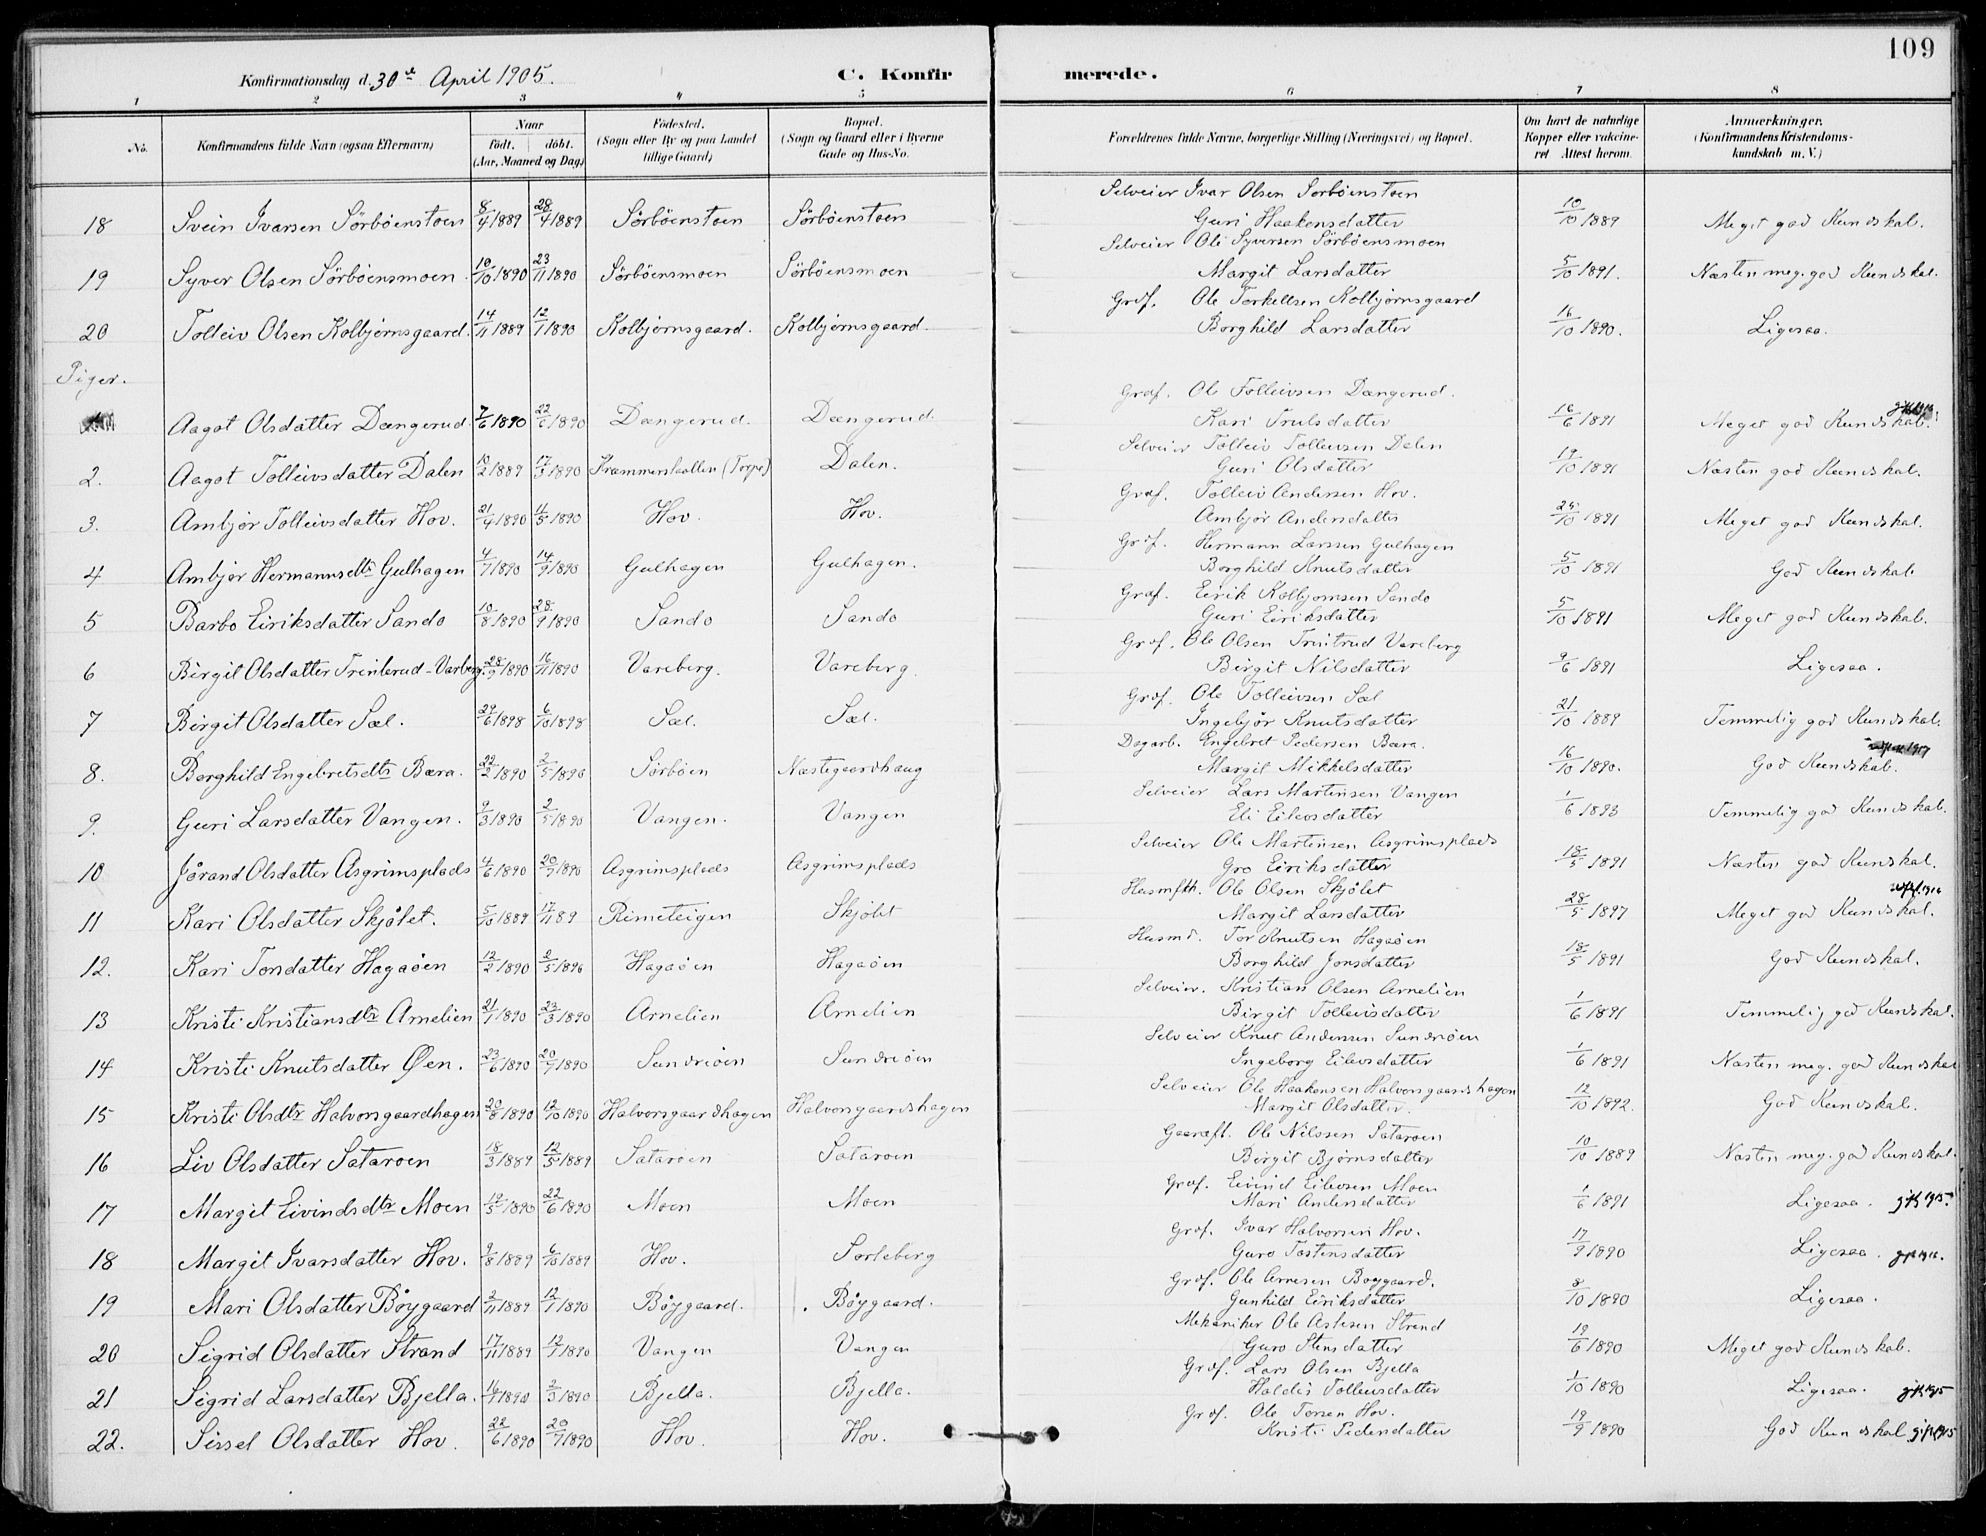 109
Konfirmationsdag d. 30te April 1905. C. Konfir merede.
1 2 3 4 5 6 7 8
No. Konfirmandens fulde Navn (ogsaa Efternavn) Naar født. døbt. (Aar, Maaned og Dag) Fødested. (Sogn eller By og paa Landet tillige Gaard) Bopæl. (Sogn og Gaard eller i Byerne Gade og Hus-No. Forældrenes fulde Navne, borgerlige Stilling (Næringsvei) og Bopæl. Om havt de naturlige Kopper eller vakcineret. Attest herom. Anmærkninger. (Konfirmandens Kristendomskundskab m. V.)
Selveier Ivar Olsen Sørbøenstoen
18 Svein Ivarsen Sørbøenstoen 8/4 1889 28/4 1889 Sørbøenstoen Sørbøenstoen Guri Haakensdatter 10/10 1889 Meget god Kundskab.
Selveier Ole Syversen Sørbøensmoen
19 Syver Olsen Sørbøensmoen 10/10 1890 23/11 1890 Sørbøensmoen Sørbøensmoen Margit Larsdatter 5/10 1891. Næsten meg. god Kundskab.
Grdf. Ole Torkelsen Kolbjørnsgaard
20 Tolleiv Olsen Kolbjørnsgaard. 14/11 1889 12/1 1890 Kolbjørnsgaard. Kolbjørnsgaard. Borghild Larsdatter 16/10 1890. Ligesaa.
Piger.
Graf. Ole Tolleivsen Dængerud.
Aagot Olsdatter Dængerud 7/6 1890 22/6 1890 Dængerud. Dængerud. Kari Trulsdatter 16/6 1891 Meget god Kundskab.
Selveier Tolleiv Tolleivsen Dalen
2. Aagot Tolleivsdatter Dalen 10/2 1889 17/3 1890 (Torpe) Dalen. Guri Olsdatter 19/10 1891 Næsten god Kundskab.
Graf. Tolleiv Andersen Hov.
3. Ambjør Tolleivsdatter Hov. 21/4 1890 4/5 1890 Hov. Hov. Ambjør Andersdatter 25/10 1891 Meget god Kundskab.
Grdf. Hermann Larsen Gulhagen
4 Ambjør Hermannsdtr Gulhagen 4/7 1890 14/9 1890 Gulhagen Gulhagen. Borghild Knutsdatter 5/10 1891 God Kundskab
Graf. Eirik Kolbjornsen Sando
5 Barbo Eiriksdatter Sando 10/8 1890 28/9 1890 Sando Sando Guri Eiriksdatter 5/10 1891 Meget god Kundskab.
Grdf. Ole Olsen Trintrud Vareberg
6 Birgit Olsdatter Trinterud-Varberg. 28/9 1890 16/11 1890 Vareberg. Vareberg. Birgit Nilsdatter 9/6 1891 Ligesaa.
Grdf. Ole Tolleivsen Sæl
7 Birgit Olsdatter Sæl. 29/6 1898 6/10 1898 Sæl. Sæl. Ingebjør Knutsdatter 21/10 1889 Temmelig god Kundskab.
Dagarb. Engebret Pedersen Bæra.
8. Borghild Engebretsdtr Bæra. 22/2 1890 2/5 1890 Sørbøen Næstegaardhaug Margit Mikkelsdatter 16/10 1890. God Kundskab.
Selveier Lars Martinsen Vangen
9. Guri Larsdatter Vangen. 9/3 1890 2/5 1890 Vangen. Vangen Eli Eilevsdatter 1/6 1893 Temmelig god Kundskab.
Selveier Ole Martinsen Asgrimsplads
10 Jørand Olsdatter Asgrimsplads 4/6 1890 20/7 1890 Asgrimsplads Asgrimsplads Gro Eiriksdatter 18/5 1891 Næsten god Kundskab.
Husmfkh. Ole Olsen Skjølet
11 Kari Olsdatter Skjølet. 5/10 1889 17/11 89 Rimeteigen Skjølet Margit Larsdatter 28/5 1897 Meget god Kundskab.
Husmd. Tor Knutsen Hagaøen
12. Kari Torsdatter Hagaøen 12/2 1890 2/5 1890 Hagaøen Hagaøen Borghild Jonsdatter 18/5 1891 God Kundskab.
Selveier. Kristian Olsen Arnelien
13 Kristi Kristiansdtr Arnelien 21/1 1890 23/3 1890 Arnelien Arnelien Birgit Tolleivsdatter 1/6 1891 Temmelig god Kundskab.
Selveier Knut Andersen Sundreøen
14 Kristi Knutsdatter Øen. 23/6 1890 20/7 1890 Sundreøen Sundreøen Ingeborg Eilevsdatter 1/6 1891 Næsten meg. god Kundskab
Selveier Ole Haakensen Halvorsgaardshagen
15 Kristi Olsdtr Halvorsgaardhagen 20/8 1890 12/10 1890 Halvorsgaardhagen Halvorsgaardshagen Margit Olsdatter. 12/10 1892. God Kundskab.
Ole Nilssen Sataroen
16 Liv Olsdatter Sataroen 18/3 1889 12/5 1889 Sataroen Sataroen Birgit Bjørnsdatter 10/10 1889 Næsten meg. god Kundskab.
Graf. Eivind Eilevsen Moen
17 Margit Eivindsdtr Moen 19/5 1890 22/6 1890 Moen Moen Mari Andersdatter 1/6 1891 Ligesaa. gift 1915.
Grdf. Ivar Halvorsen Hov.
18 Margit Ivarsdatter Hov. 9/8 1889 6/10 1889 Hov. Sorteberg Guro Tostensdatter 17/9 1890 Ligesaa.
Grdf. Ole Arnesen Bøygaard.
19 Mari Olsdatter Bøygaard 2/11 1889 12/1 1890 Bøygaard. Bøygaard. Gunhild Eiriksdatter 8/10 1890 Ligesaa.
Mekaniker Ole Aslesen Strand
20 Sigrid Olsdatter Strand 17/11 1889 12/1 1890 Vangen Vangen Guro Stensdatter 19/6 1890 Meget god Kundskab.
Grdf. Lars Olsen Bjella
21 Sigrid Larsdatter Bjella. 1890 2/3 1890 Bjella. Bjella. Haldis Tolleivsdatter 1/10 1890 Ligesaa. gift 1915
Grdf. Ole Torsen Hov.
22. Sissel Olsdatter Hov. 22/6 1890 20/7 1890 Hov. Hov. Kristi Pedersdatter 19/9 1890 God Kundskab gift 1905